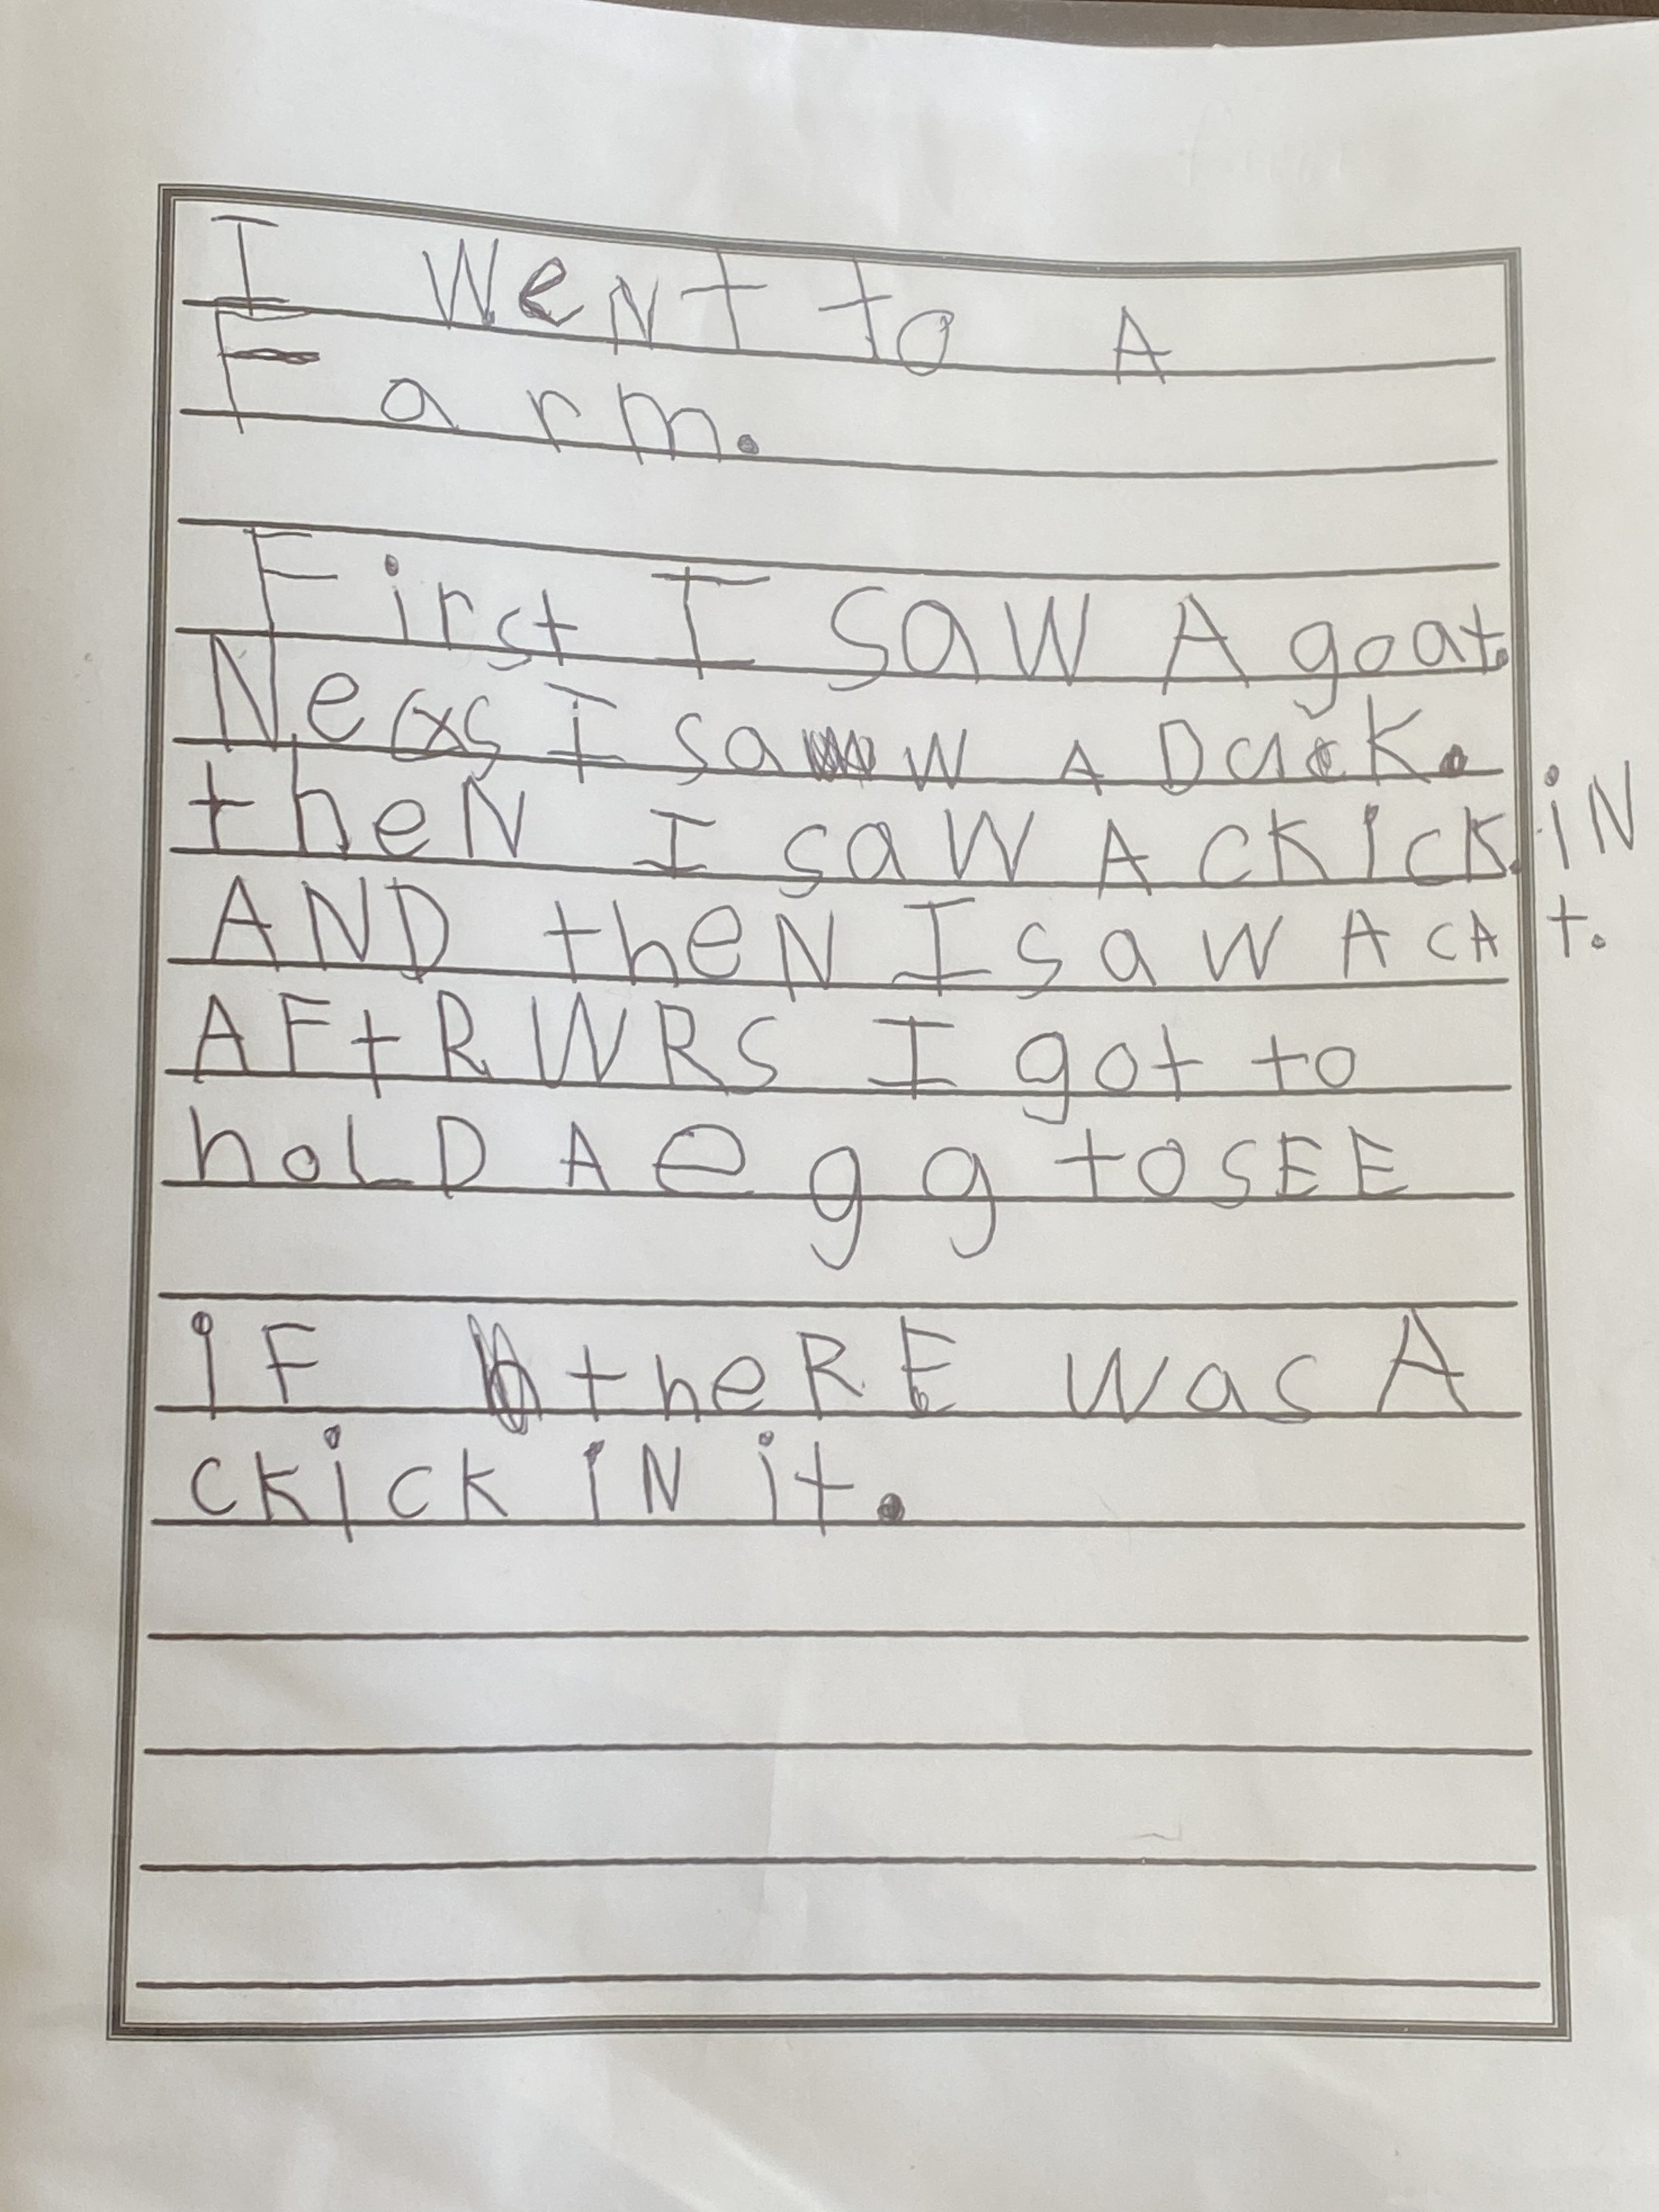 I WeNT to A
Farm.
First I SAW A goat.
Nexs I saw A Duck.
theN I saW A CKicK.iN
AND theN I saW A CAt.
AFtRWRS I got to
hoLD A egg toSEE
iF theRE was A
ckick iN it.